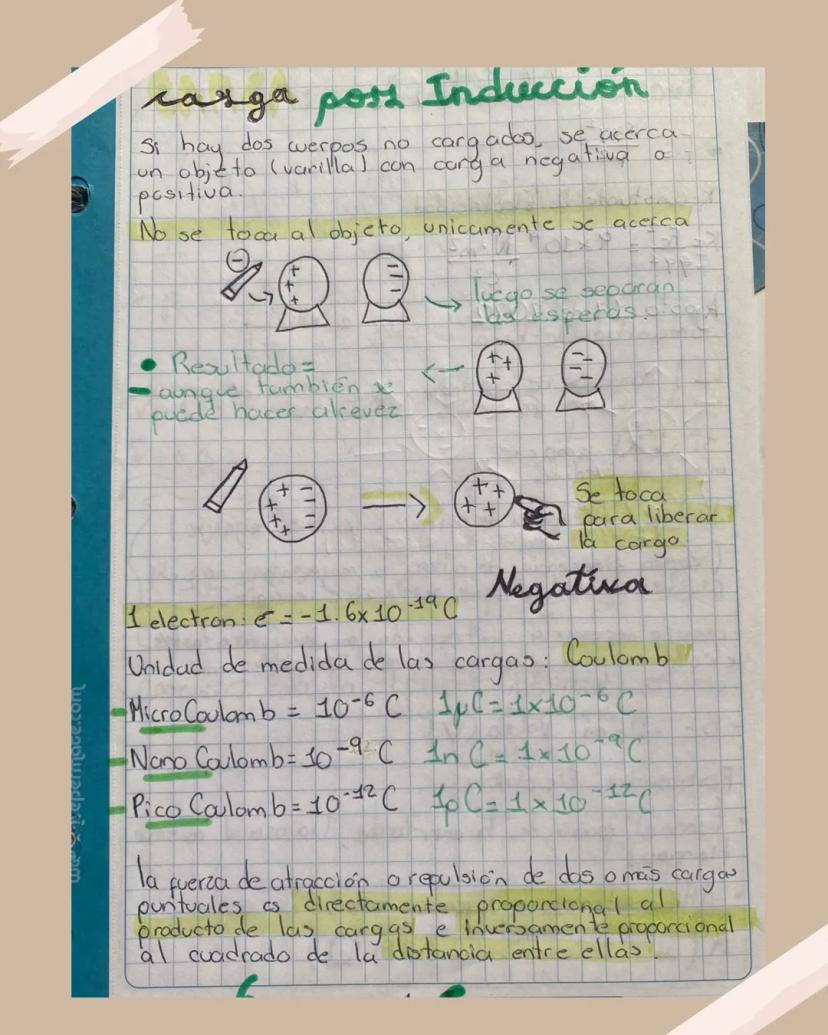 carga por Inducción
Si hay dos cuerpos no cargados, se acerca
un objeto (varilla) con carga negativa o
positiva.
No se toca al objeto, unicamente se acerca
-
+
+
+
luego se separan
las esperas.
• Resultado =
- aunque también se
puede hacer alrevez
+ +
+
+ -
+ -
+ -
+ -
+ +
+ +
Se toca
para liberar
la carga
Negativa
1 electron: e⁻ = -1.6x10⁻¹⁹ C
Unidad de medida de las cargas: Coulomb
- MicroCoulomb = 10⁻⁶ C 1μC = 1x10⁻⁶ C
- Nano Coulomb = 10⁻⁹ C 1nC = 1x10⁻⁹ C
- Pico Coulomb = 10⁻¹² C 1pC = 1x10⁻¹² C
la fuerza de atracción o repulsión de dos o más cargas
puntuales es directamente proporcional al
producto de las cargas e inversamente proporcional
al cuadrado de la distancia entre ellas.